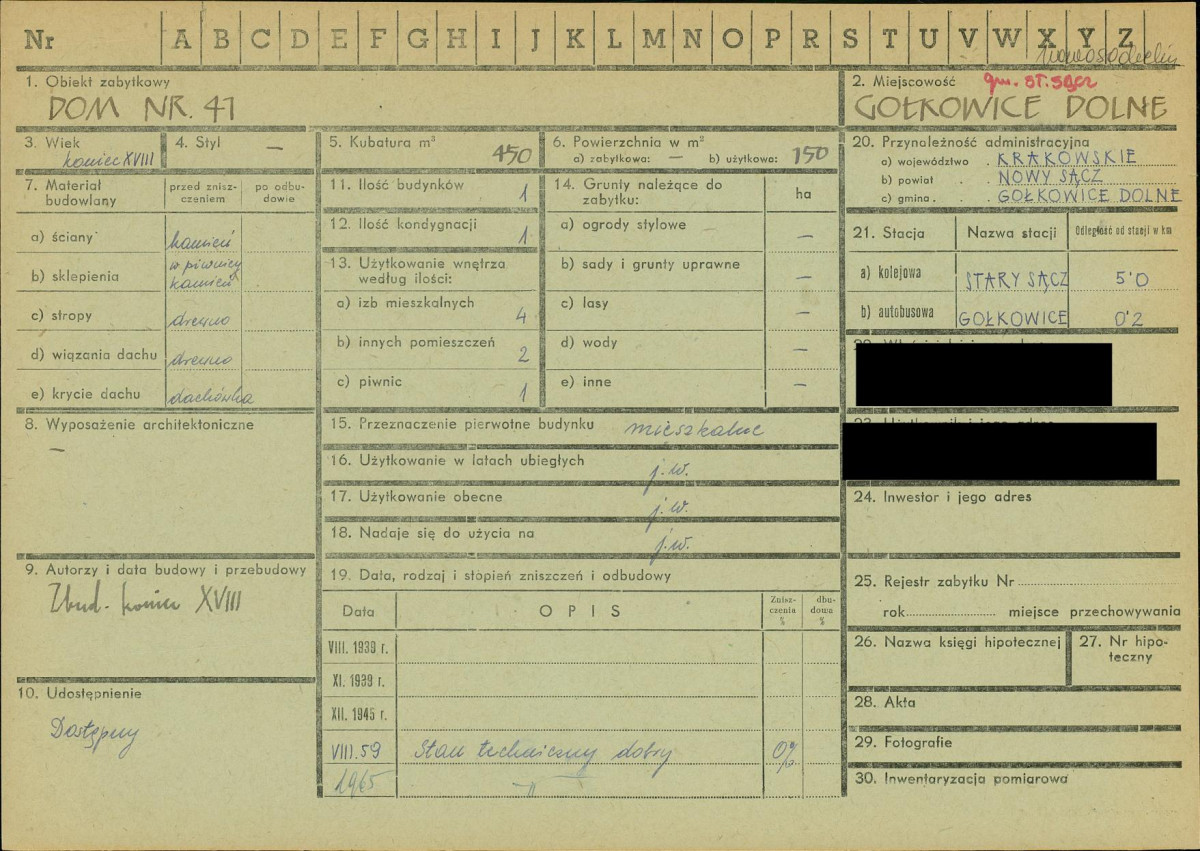 Nr A B C D E F G H I J K L M N O P R S T U V W X Y Z
nowosądeckie
1. Obiekt zabytkowy
DOM NR. 41
2. Miejscowość gm. ST. SĄCZ
GOŁKOWICE DOLNE
3. Wiek
koniec XVIII
4. Styl —
5. Kubatura m³
450
6. Powierzchnia w m²
a) zabytkowa: — b) użytkowa: 150
7. Materiał budowlany
przed znisz-
czeniem
po odbu-
dowie
a) ściany kamień
b) sklepienia w piwnicy
kamień
c) stropy drewno
d) wiązania dachu drewno
e) krycie dachu dachówka
8. Wyposażenie architektoniczne
—
9. Autorzy i data budowy i przebudowy
Zbud. koniec XVIII
10. Udostępnienie
Dostępny
11. Ilość budynków 1
12. Ilość kondygnacji 1
13. Użytkowanie wnętrza
według ilości:
a) izb mieszkalnych 4
b) innych pomieszczeń 2
c) piwnic 1
14. Grunty należące do
zabytku: ha
a) ogrody stylowe —
b) sady i grunty uprawne —
c) lasy —
d) wody —
e) inne —
15. Przeznaczenie pierwotne budynku mieszkalne
16. Użytkowanie w latach ubiegłych j.w.
17. Użytkowanie obecne j.w.
18. Nadaje się do użycia na j.w.
19. Data, rodzaj i stopień zniszczeń i odbudowy
Data OPIS Znisz-
czenia
%
dbu-
dowa
%
VIII. 1939 r.
XI. 1939 r.
XII. 1945 r.
VIII. 59 Stan techniczny dobry 0%
1965 —"—
20. Przynależność administracyjna
a) województwo . KRAKOWSKIE
b) powiat . . NOWY SĄCZ
c) gmina . . GOŁKOWICE DOLNE
21. Stacja Nazwa stacji Odległość od stacji w km
a) kolejowa STARY SĄCZ 5'0
b) autobusowa GOŁKOWICE 0'2
24. Inwestor i jego adres
25. Rejestr zabytku Nr
rok miejsce przechowywania
26. Nazwa księgi hipotecznej
27. Nr hipo-
teczny
28. Akta
29. Fotografie
30. Inwentaryzacja pomiarowa